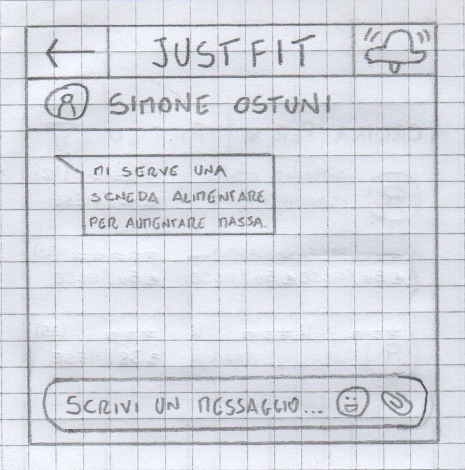 JUSTFIT
SIMONE OSTUNI
MI SERVE UNA
SCHEDA ALIMENTARE
PER AUMENTARE MASSA.
SCRIVI UN MESSAGGIO...